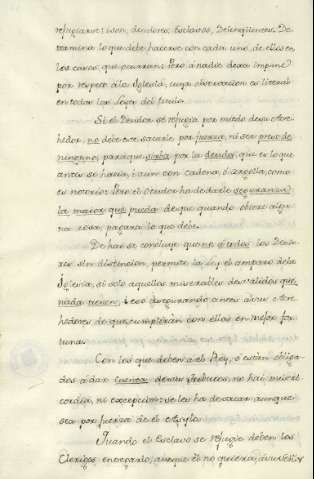 refugiarse: son, deudores, Esclavos, Delinqüentes. De-
termina lo que debe hacerse con cada uno de ellos en
los casos, que ocurran: Pero à nadie dexa impune
por respeto à la Iglesia, cuya observacion es literal
en todas las Leyes del fuero.
Si el Deudor se refugia por miedo de su Acre-
hedor, no debe este sacarle por fuerza, ni ser preso de
ninguno, para que sirba por la deuda, que es lo que
antes se hacia, i aun con cadena, ò argolla, como
es notorio: Pero el Deudor ha de darle seguranza
la maior que pueda de que quando obiere algu-
na cosa, pagará lo que debe.
De haì se concluye que no à todos los Deudo-
res sin distincion, permite la Ley el amparo de la
Iglesia, si solo aquellos miserables desvalidos que
nada tienen, i eso asegurando antes à sus Acre-
hedores de que cumpliràn con ellos en mejor for-
tuna.
Con los que deben al Rey, ò estàn obliga-
dos à dar cuenta de sus tributos no hai miseri-
cordia, ni excepcion: se les ha de sacar aunque
sea por fuerza de el Asylo.
Quando el Esclavo se refugie deben los
Clerigos entregarlo, aunque èl no quiera, à su Señor